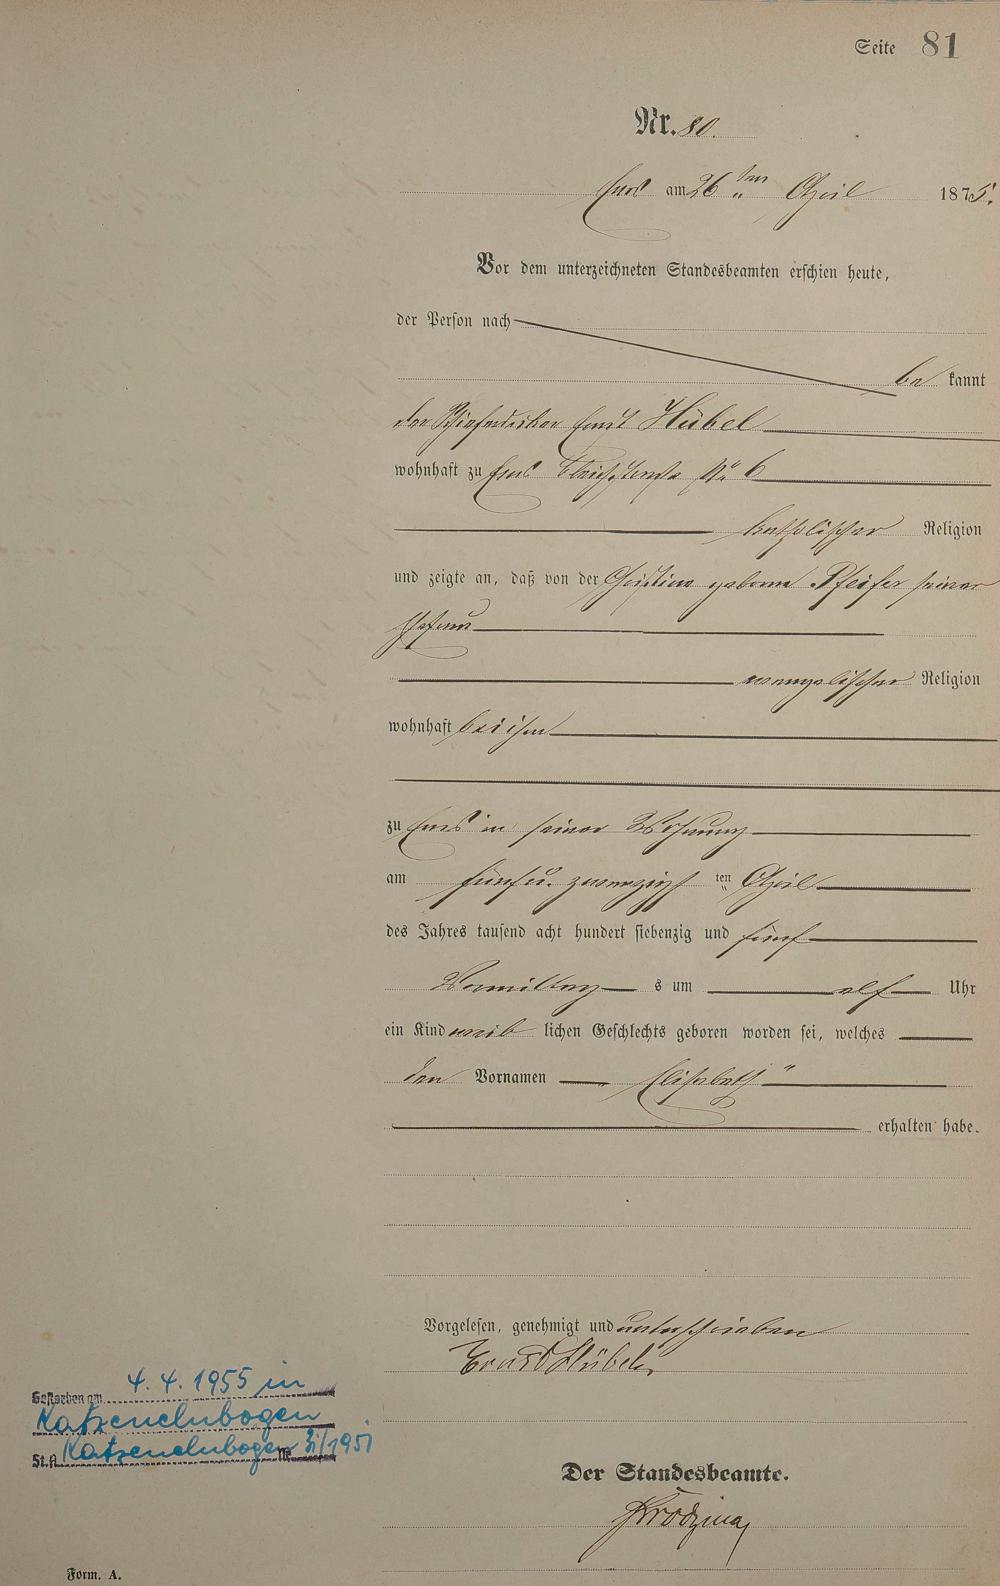 Seite 81
Nr. 80.
Ems am 26 ten April 1875.
Vor dem unterzeichneten Standesbeamten erschien heute,
der Person nach
be kannt
der Schieferdecker Ernst Hübel
wohnhaft zu Ems Bleichstraße No 6
katholischer Religion
und zeigte an, daß von der Christine geborne Pfeifer seiner
Ehefrau
evangelischer Religion
wohnhaft bei ihm
zu Ems in seiner Wohnung
am fünf u. zwanzigsten April
des Jahres tausend acht hundert siebenzig und fünf
Vormittags um elf Uhr
ein Kind weiblichen Geschlechts geboren worden sei, welches
den Vornamen Elisabeth"
erhalten habe.
Vorgelesen, genehmigt und unterschrieben
Ernst Hübel
Gestorben am 4. 4. 1955 in
Katzenelnbogen
St.A. Katzenelnbogen Nr.
Der Standesbeamte.
Form. A.